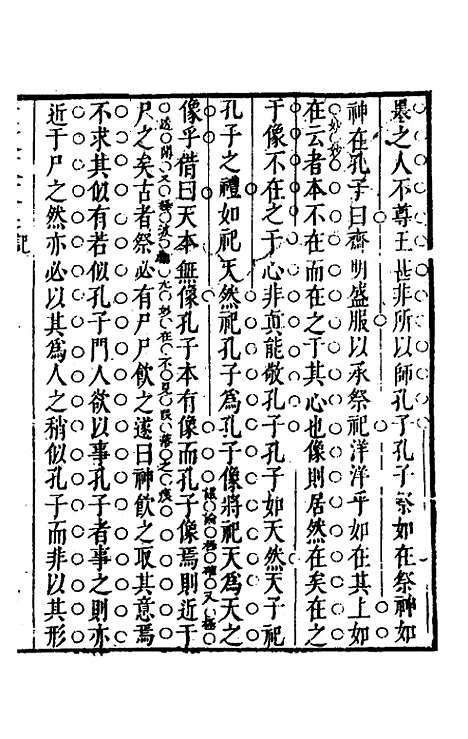 暴之人不尊王甚非所以師孔子孔子祭如在祭神如
神在孔子曰齋明盛服以承祭祀洋洋乎如在其上如
在云者本不在而在之于其心也像則居然在矣在之
妙妙
于像不在之于心非真能敬孔子孔子如天然天子祀
孔子之禮如祀天然祀孔子為孔子像將祀天為天之
像乎借曰天本無像孔子本有像而孔子像焉則近于
尸之矣古者祭必有尸尸飲之遂曰神飲之取其意焉
不求其似有若似孔子門人欲以事孔子者事之則亦
近于尸之然亦必以其為人之稍似孔子而非以其形
記